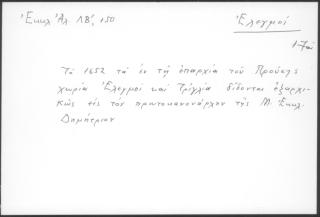 Ἐκκλ Ἀλ ΛΒ', 150
Ἐλεγμοί
Τῷ 1652 τὰ ἐν τῇ ἐπαρχίᾳ τοῦ Προύσης
χωρία Ἐλεγμοί καὶ Τρίγλια δίδονται ἐξαρχι-
κῶς εἰς τὸν πρωτοκανονάρχην τῆς Μ. Ἐκκλ.
Δημήτριον